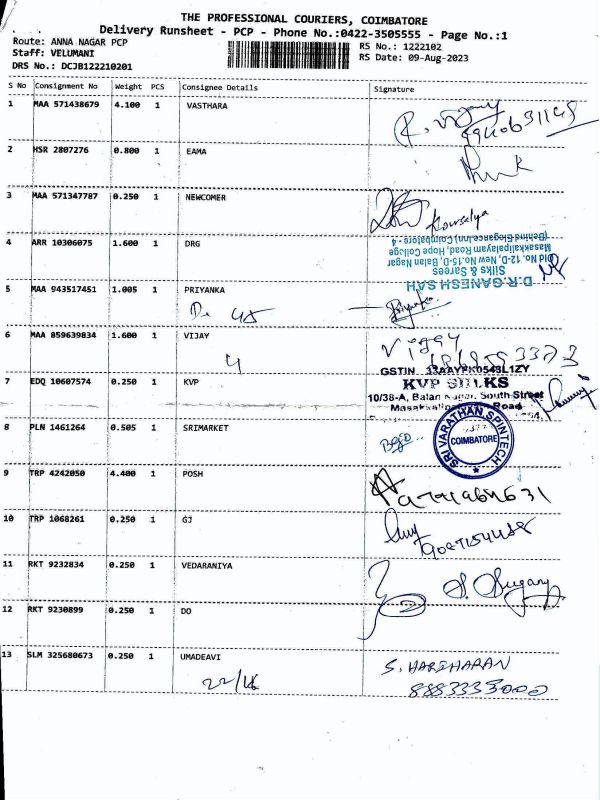 THE PROFESSIONAL COURIERS, COIMBATORE
Delivery Runsheet - PCP - Phone No.:0422-3505555 - Page No.:1
Route: ANNA NAGAR PCP
RS No.: 1222102
Staff: VELUMANI
RS Date: 09-Aug-2023
DRS No.: DCJB122210201
S No Consignment No Weight PCS Consignee Details Signature
1 MAA 571438679 4.100 1 VASTHARA
2 HSR 2807276 0.800 1 EAMA
3 MAA 571347787 0.250 1 NEWCOMER
Kowsalya
4 ARR 10306075 1.600 1 DRG
(Behind Elegance Inn) Coimbatore - 4
Masakkalipalayam Road, Hope College
Old No. 12-D, New No.15-D, Balan Nagar
Silks & Sarees
D.R.GANESH SAH
5 MAA 943517451 1.005 1 PRIYANKA
Priyanka
6 MAA 859639834 1.600 1 VIJAY
4
Vijay
GSTIN
7 EDQ 10607574 0.250 1 KVP
KVP SILKS
10/38-A, Balan Nagar, South Street
Road
8 PLN 1461264 0.505 1 SRIMARKET
SRI VARATHAN SPINTECH
COIMBATORE
9 TRP 4242050 4.400 1 POSH
10 TRP 1068261 0.250 1 GJ
11 RKT 9232834 0.250 1 VEDARANIYA
12 RKT 9230899 0.250 1 DO
13 SLM 325680673 0.250 1 UMADEAVI
S. HARIHARAN
8883333000